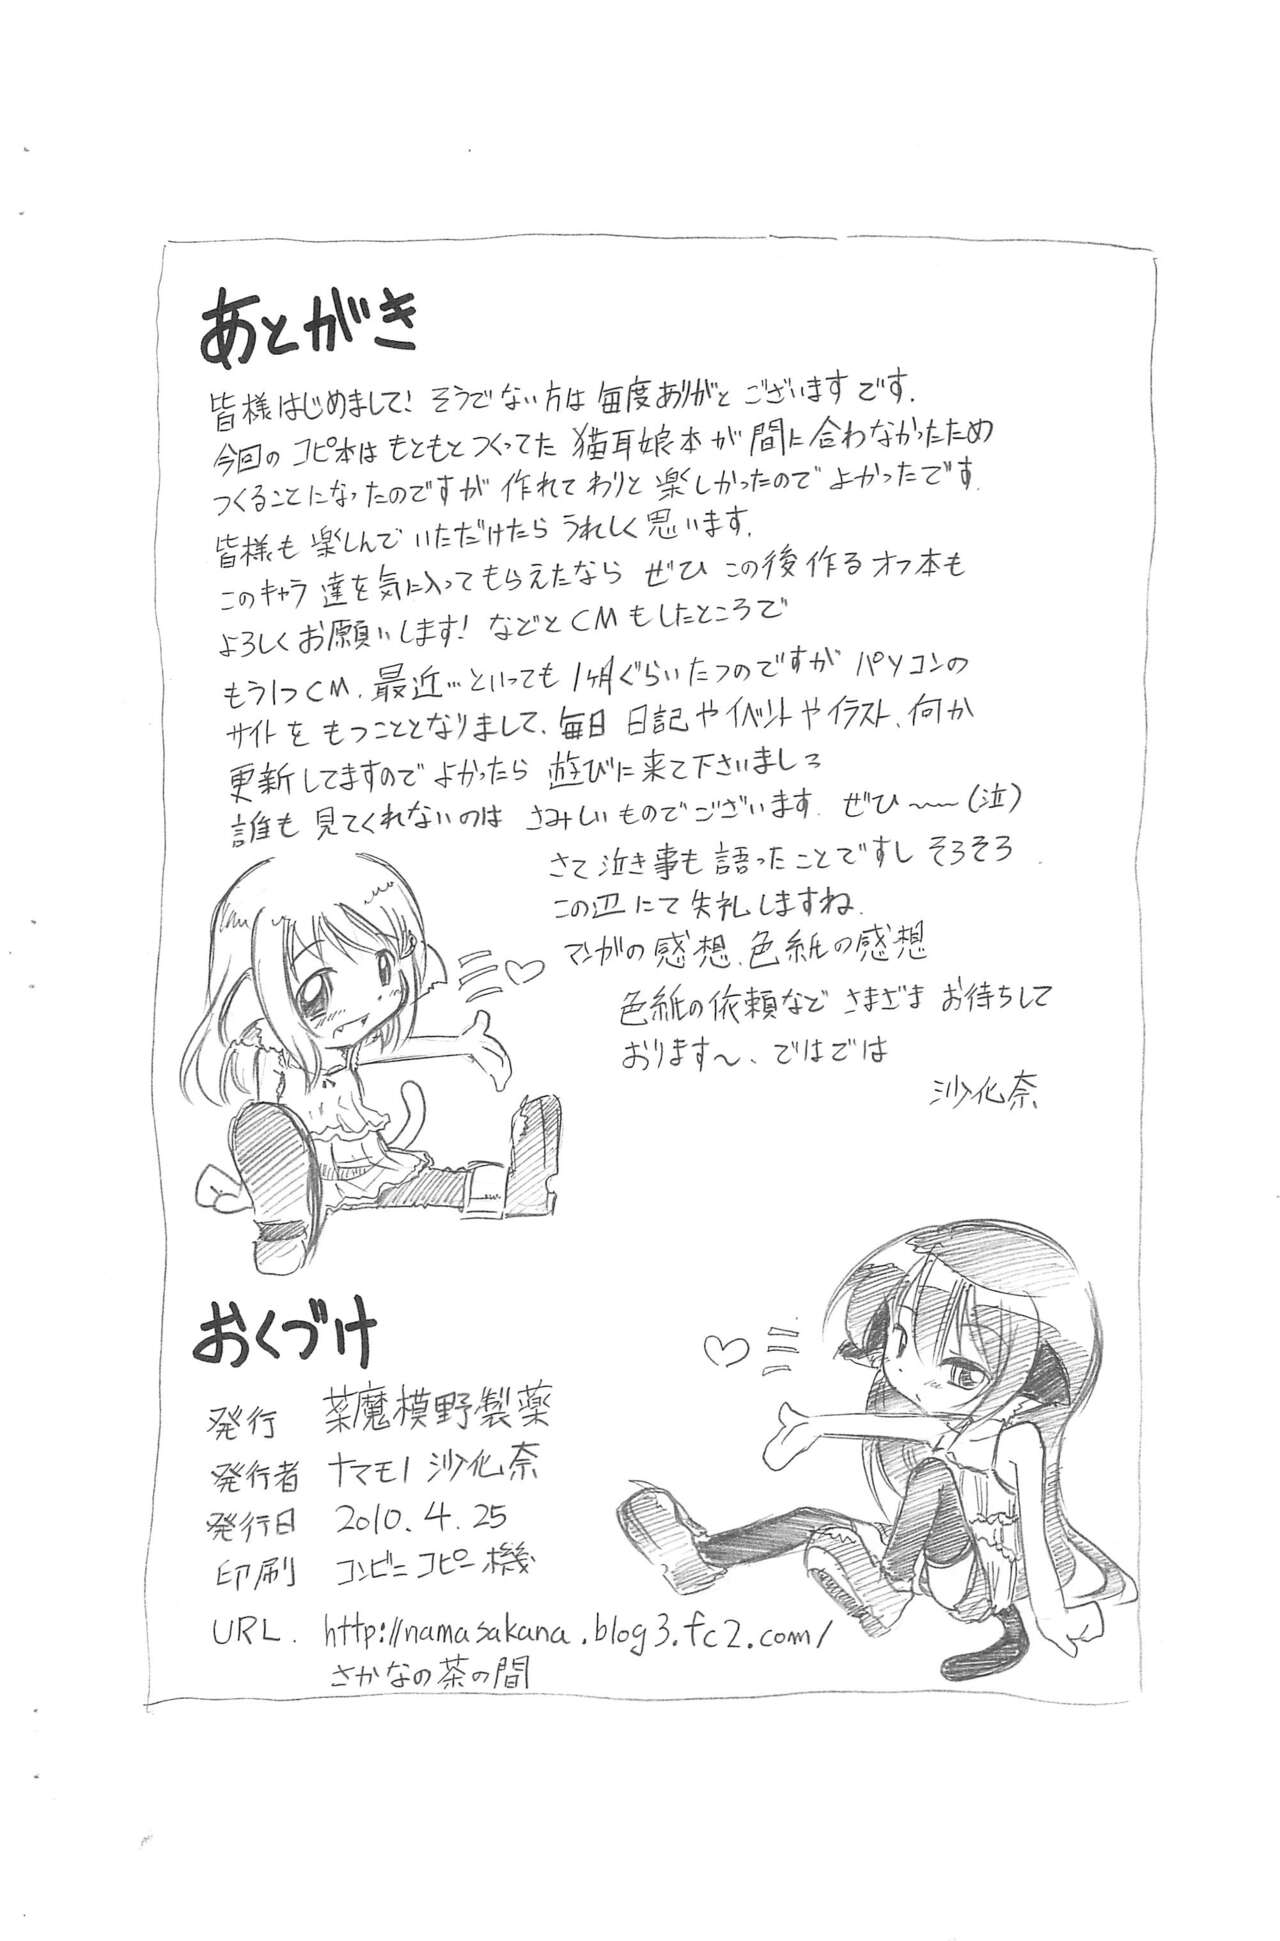 あとがき
皆様はじめまして！そうでない方は毎度ありがとございますです.
今回のコピ本はもともとつくってた猫耳娘本が間に合わなかったため
つくることになったのですが作れてわりと楽しかったのでよかったです.
皆様も楽しんでいただけたらうれしく思います.
このキャラ達を気に入ってもらえたならぜひこの後作るオフ本も
よろしくお願いします！などとCMもしたところで
もう1つCM.最近…といっても1ヶ月ぐらいたつのですがパソコンの
サイトをもつこととなりまして、毎日日記やイベントやイラスト、何か
更新してますのでよかったら遊びに来て下さいましろ
誰も見てくれないのはさみしいものでございます.ぜひ〜〜(泣)
さて泣き事も語ったことですしそろそろ
この辺にて失礼しますね.
マンガの感想、色紙の感想
色紙の依頼などさまざまお待ちして
おります〜、ではでは
沙化奈
おくづけ
発行 薬魔模野製薬
発行者 ナマモノ沙化奈
発行日 2010.4.25
印刷 コンビニコピー機
URL. http://namasakana.blog3.fc2.com/
さかなの茶の間